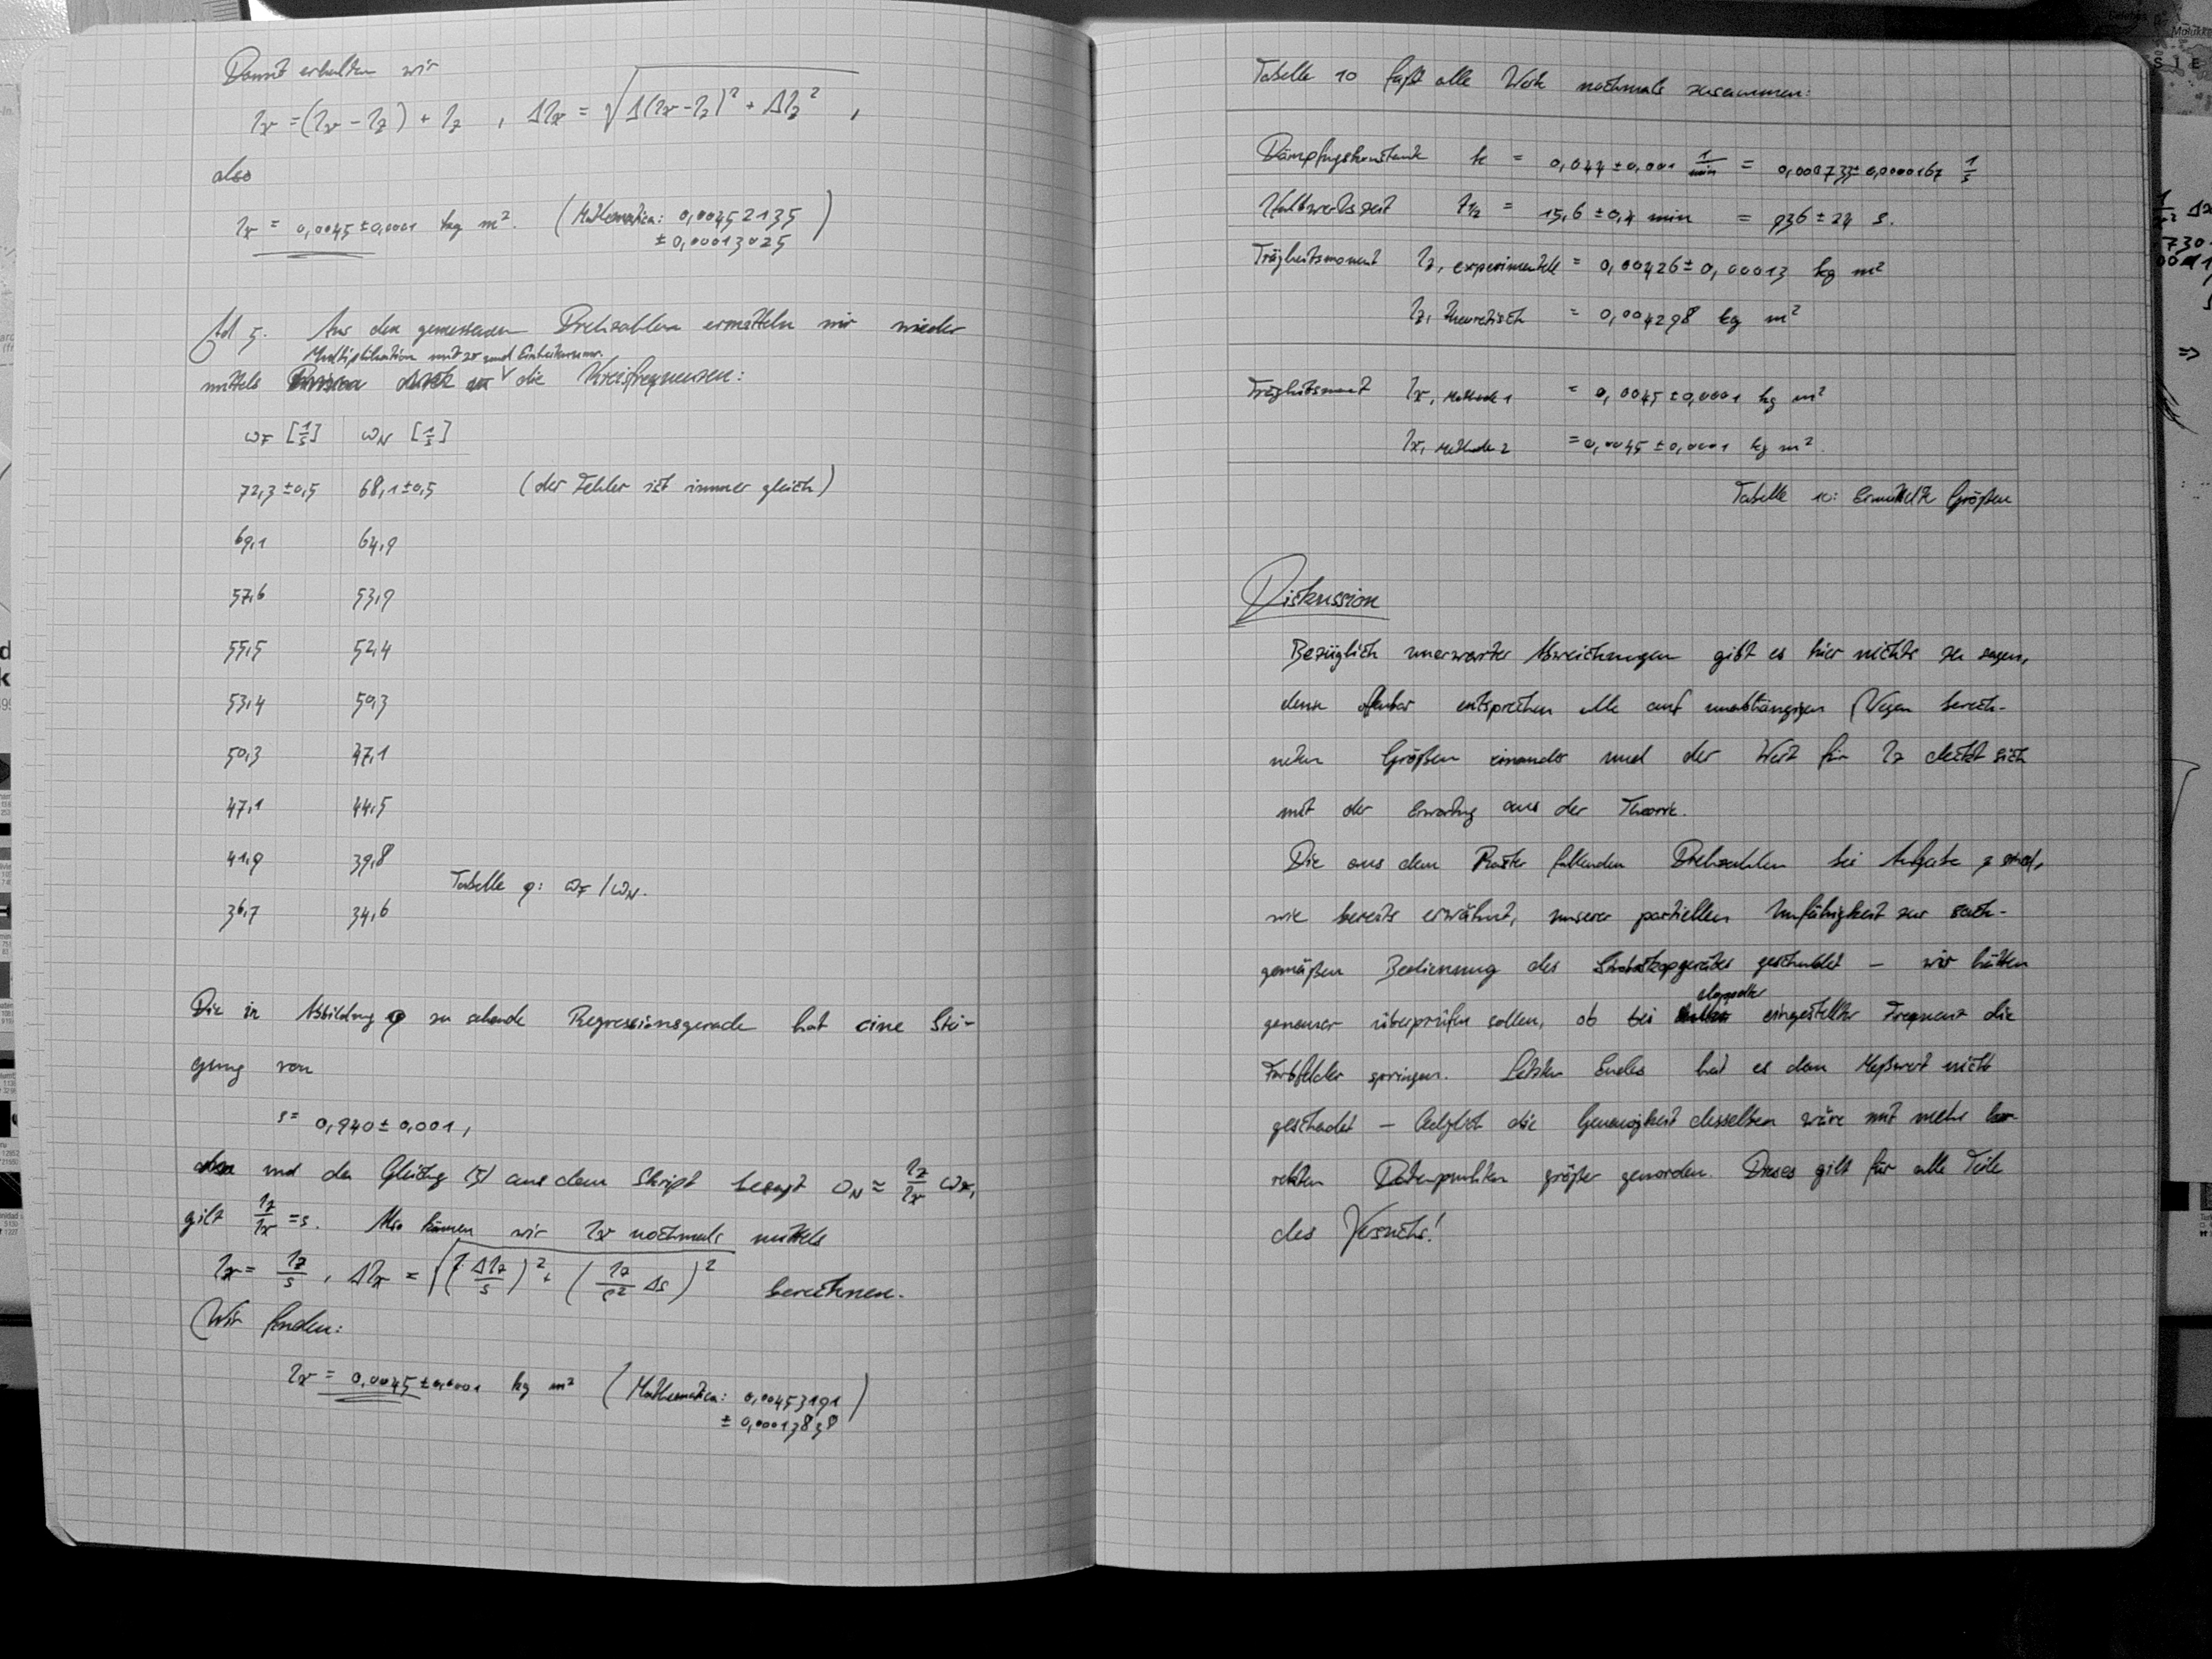 Damit erhalten wir
Ix = (Ix - Iz) + Iz , ΔIx = √(Δ(Ix-Iz)² + ΔIz²) ,
also
Ix = 0,0045 ± 0,0001 kg m². (Mathematica: 0,00452135
± 0,00013025)
Ad 5. Aus den gemessenen Drehzahlen ermitteln wir wieder
Multiplikation mit 2π und Einheitenumr.
mittels die Kreisfrequenzen:
ωF [1/s] ωN [1/s]
72,3 ± 0,5 68,1 ± 0,5 (der Fehler ist immer gleich)
69,1 64,9
57,6 53,9
55,5 52,4
53,4 50,3
50,3 47,1
47,1 44,5
41,9 39,8
Tabelle 9: ωF / ωN.
36,7 34,6
Die in Abbildung 9 zu sehende Regressionsgerade hat eine Stei-
gung von
s = 0,940 ± 0,001,
und da Gleichung (5) aus dem Skript besagt ωN ≈ Iz/Ix ωF,
gilt Iz/Ix = s. Also können wir Ix nochmals mittels
Ix = Iz/s , ΔIx = √((ΔIz/s)² + (Iz/s² Δs)²) berechnen.
Wir finden:
Ix = 0,0045 ± 0,0001 kg m² (Mathematica: 0,00453191
± 0,00013838)
Tabelle 10 faßt alle Werte nochmals zusammen:
Dämpfungskonstante k = 0,044 ± 0,001 1/min = 0,000733 ± 0,0000167 1/s
Halbwertszeit t½ = 15,6 ± 0,4 min = 936 ± 24 s.
Trägheitsmoment Iz, experimentell = 0,00426 ± 0,00013 kg m²
Iz, theoretisch = 0,004298 kg m²
Trägheitsmoment Ix, Methode 1 = 0,0045 ± 0,0001 kg m²
Ix, Methode 2 = 0,0045 ± 0,0001 kg m².
Tabelle 10: Ermittelte Größen
Diskussion
Bezüglich unerwarter Abweichungen gibt es hier nichts zu sagen,
denn offenbar entsprechen alle auf unabhängigen Wegen berech-
neten Größen einander und der Wert für Iz deckt sich
mit der Erwartung aus der Theorie.
Die aus dem Raster fallenden Drehzahlen bei Aufgabe 3 sind,
wie bereits erwähnt, unserer partiellen Unfähigkeit zur sach-
gemäßen Bedienung des Stroboskopgerätes geschuldet – wir hätten
doppelter
genauer überprüfen sollen, ob bei eingestellter Frequenz die
Farbfelder springen. Letzten Endes hat es dem Meßwert nicht
geschadet – lediglich die Genauigkeit desselben wäre mit mehr kor-
rekten Datenpunkten größer geworden. Dieses gilt für alle Teile
des Versuchs!